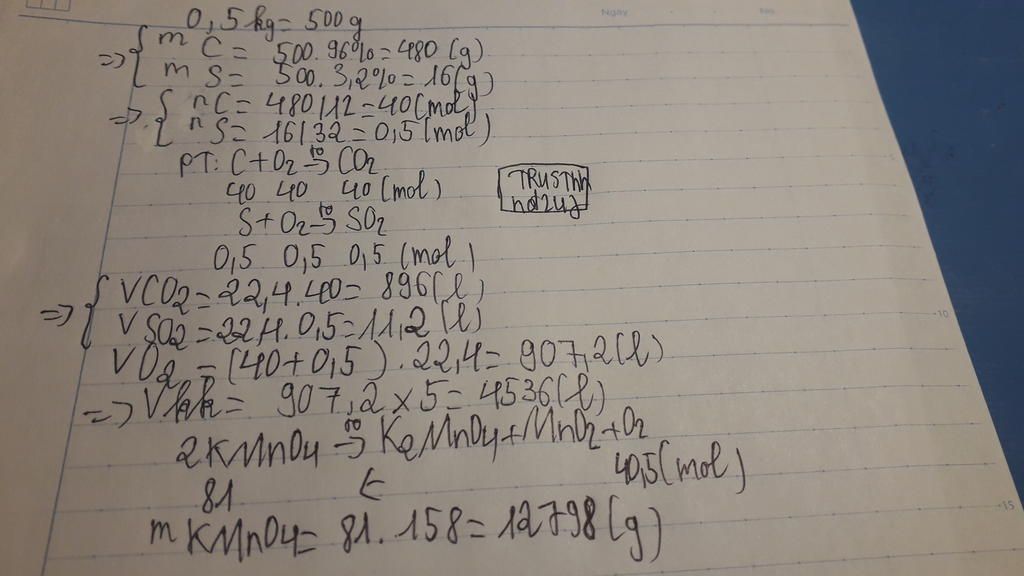 Ngày No.
0,5 kg = 500 g
=> { m C = 500. 96% = 480 (g)
m S = 500. 3,2% = 16 (g)
=> { n C = 480/12 = 40 (mol)
n S = 16/32 = 0,5 (mol)
PT: C + O2 to→ CO2
40 40 40 (mol)
S + O2 to→ SO2
0,5 0,5 0,5 (mol)
=> { VCO2 = 22,4. 40 = 896 (l)
V SO2 = 22,4. 0,5 = 11,2 (l)
VO2 = (40 + 0,5). 22,4 = 907,2 (l)
=> Vkk = 907,2 x 5 = 4536 (l)
2KMnO4 to→ K2MnO4 + MnO2 + O2
81 ← 40,5 (mol)
m KMnO4 = 81. 158 = 12798 (g)
10
15